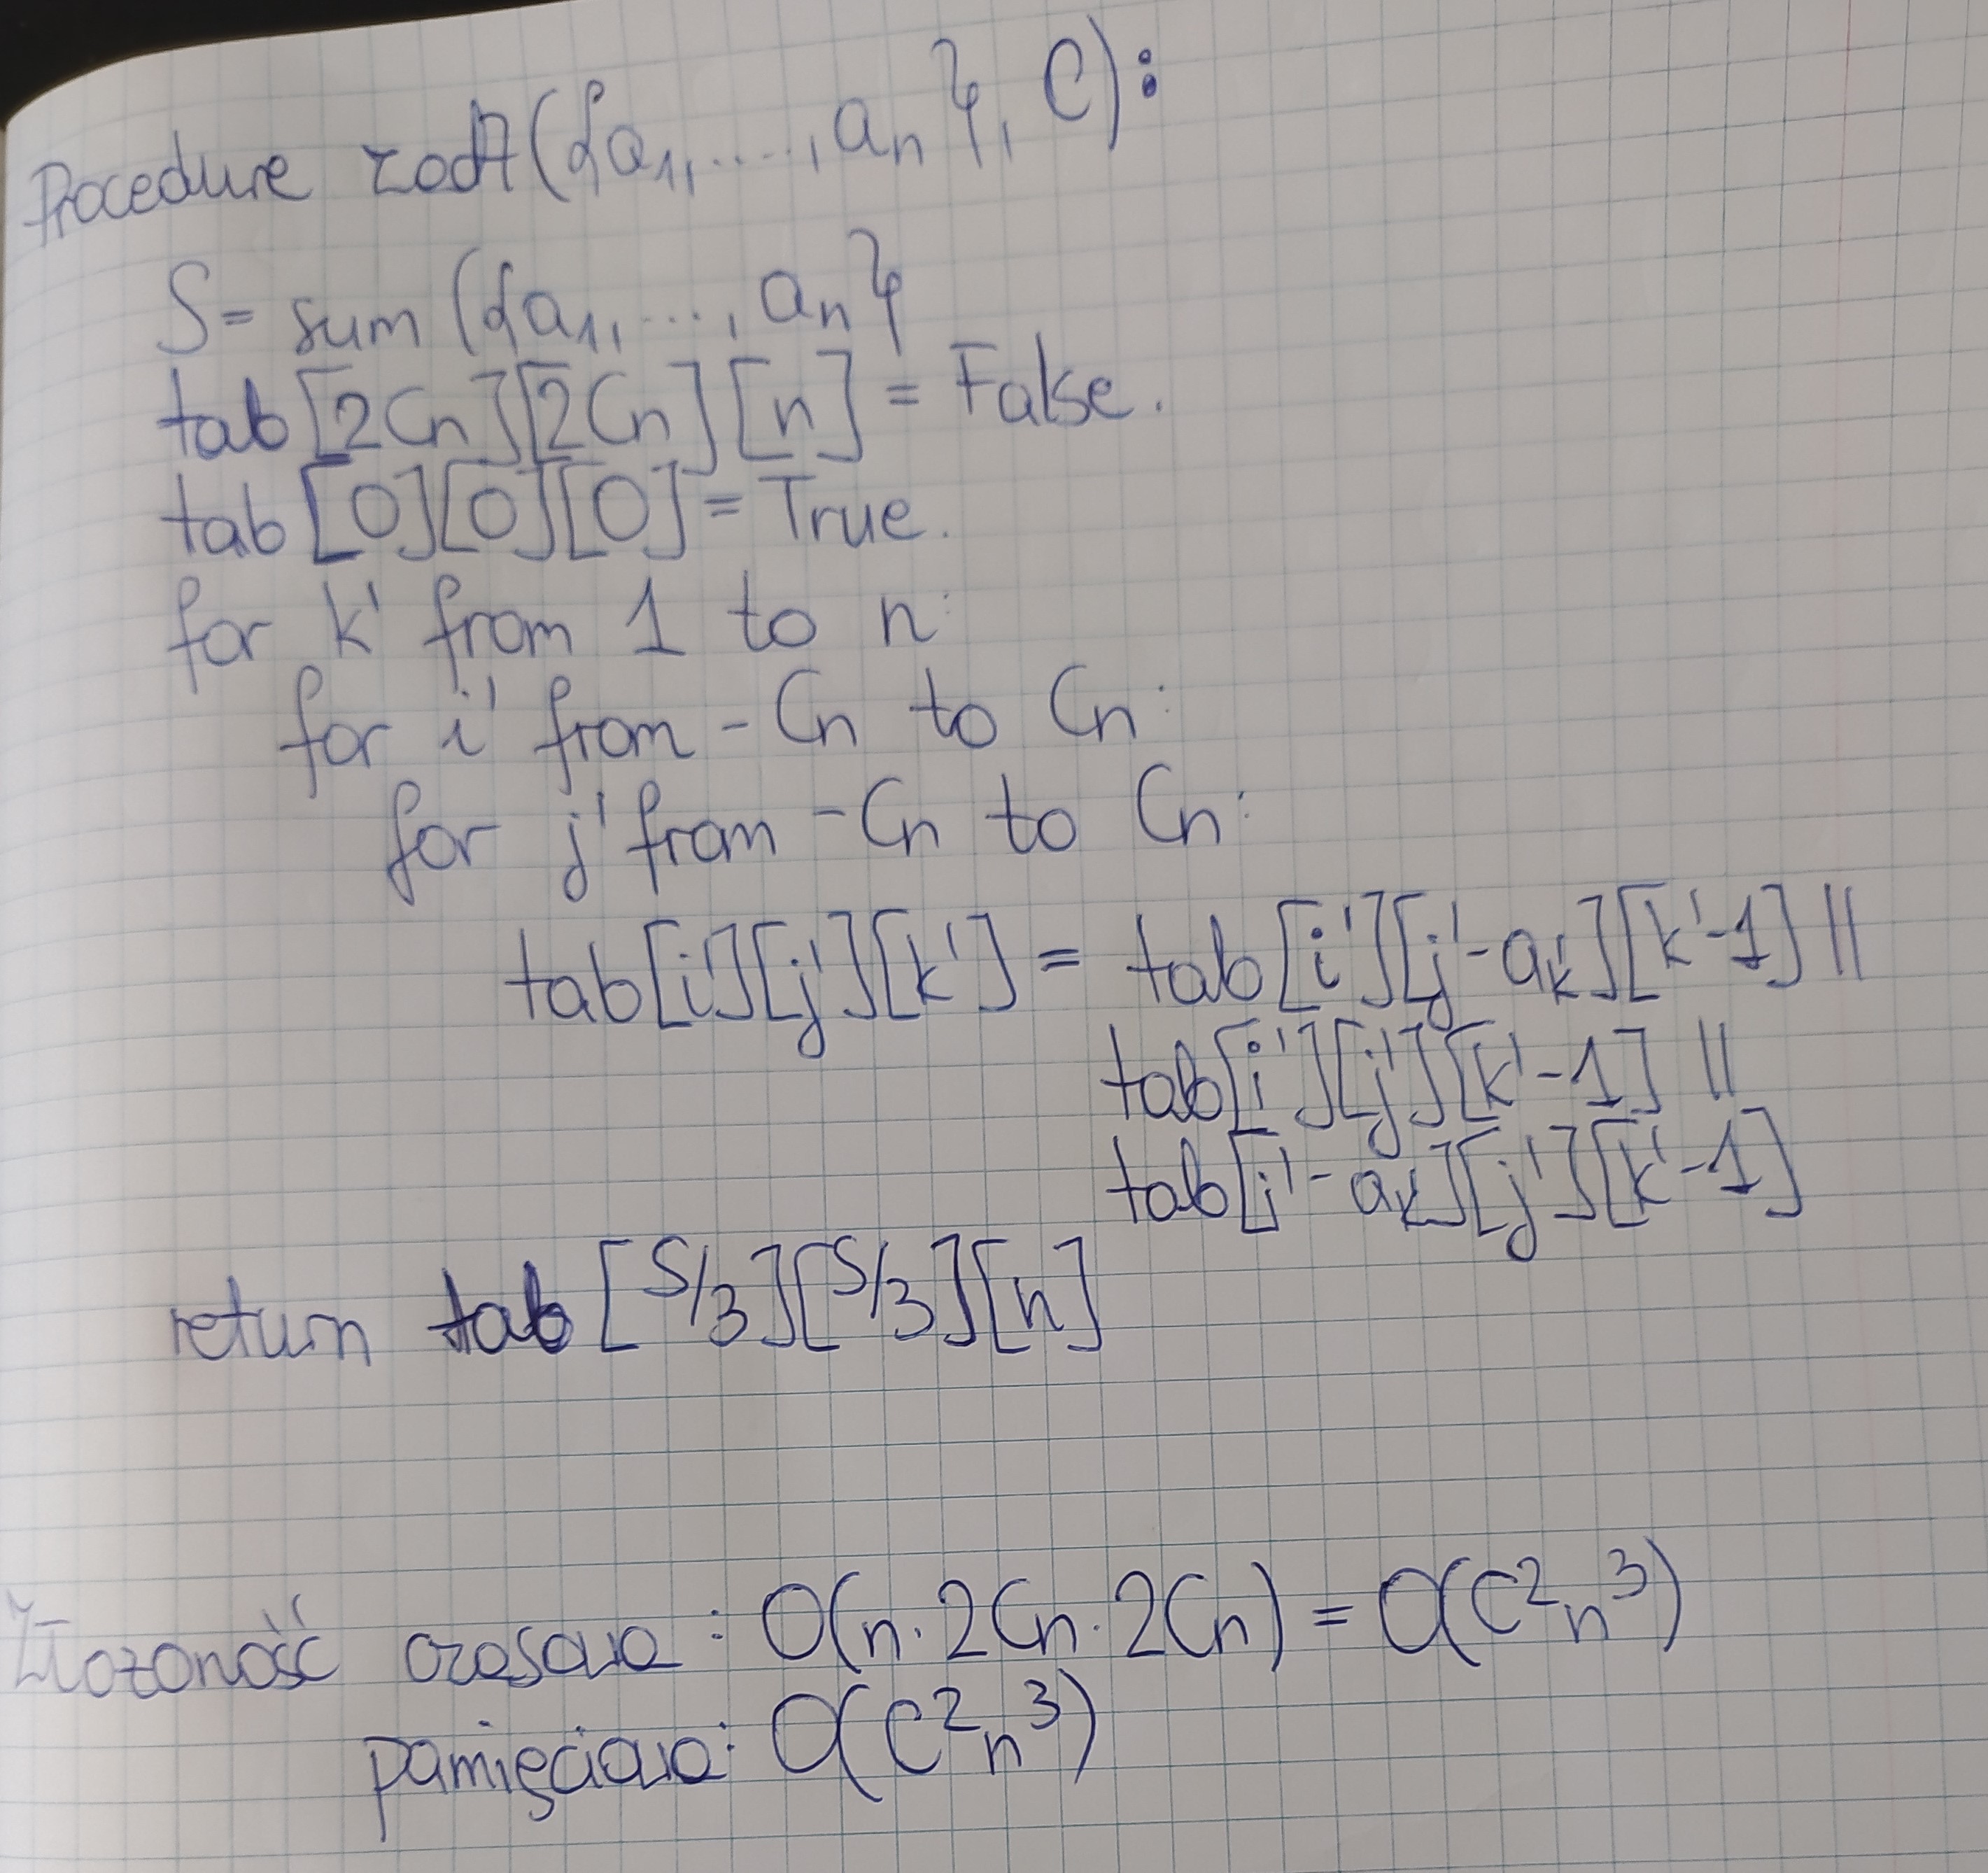 Procedure zad7({a1,....,an}, C):
S= sum ({a1,...,an}
tab[2Cn][2Cn][n] = False.
tab[0][0][0] = True.
for k' from 1 to n:
for i' from -Cn to Cn:
for j' from -Cn to Cn:
tab[i'][j'][k'] = tab[i'][j'-ak'][k'-1] ||
tab[i'][j'][k'-1] ||
tab[i'-ak'][j'][k'-1]
return tab[S/3][S/3][n]
Złożoność czasowa: O(n·2Cn·2Cn) = O(C²n³)
pamięciowa: O(C²n³)